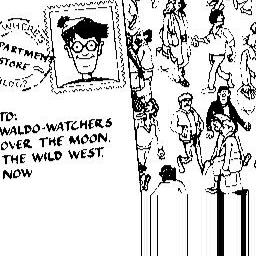 PARTMENT
STORE
TO:
WALDO-WATCHERS
OVER THE MOON,
THE WILD WEST,
NOW